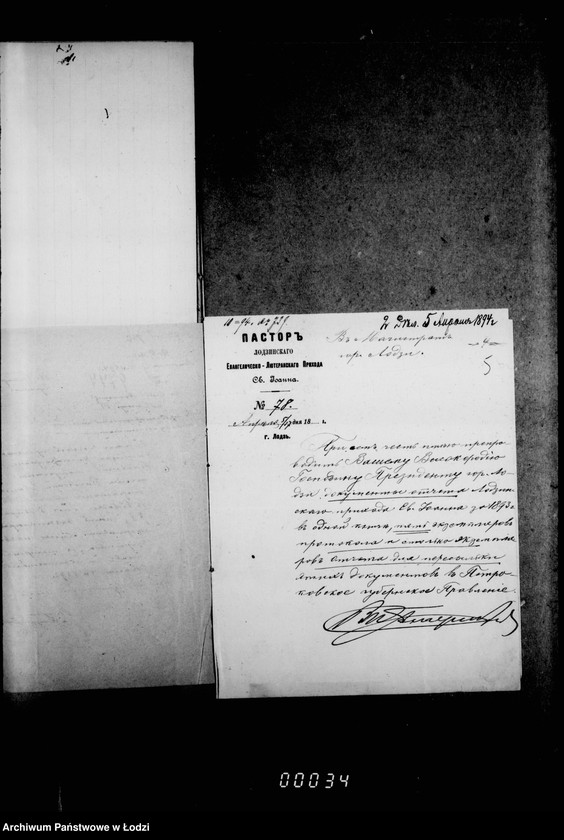 2 Дѣл. 5 Апрѣля 1894 г
ПАСТОРЪ
ЛОДЗИНСКАГО
ЕВАНГЕЛИЧЕСКО-ЛЮТЕРАНСКАГО ПРИХОДА
СВ. ІОАННА.
№ 78.
Апрѣля дня 18 г.
г. Лодзь.
Въ Магистратъ
гор. Лодзи.
4
5
При семъ честь имѣю препро-
водить Вашему Высокородію
Господину Президенту гор. Ло-
дзи документы отчета Лодзин-
скаго прихода Св. Іоанна за 1893 г.
въ одной книгѣ, экземпляровъ
протокола и столько экземпля-
ровъ отчета для пересылки
этихъ документовъ въ Петро-
ковское Губернское Правленіе.
00034
Archiwum Państwowe w Łodzi